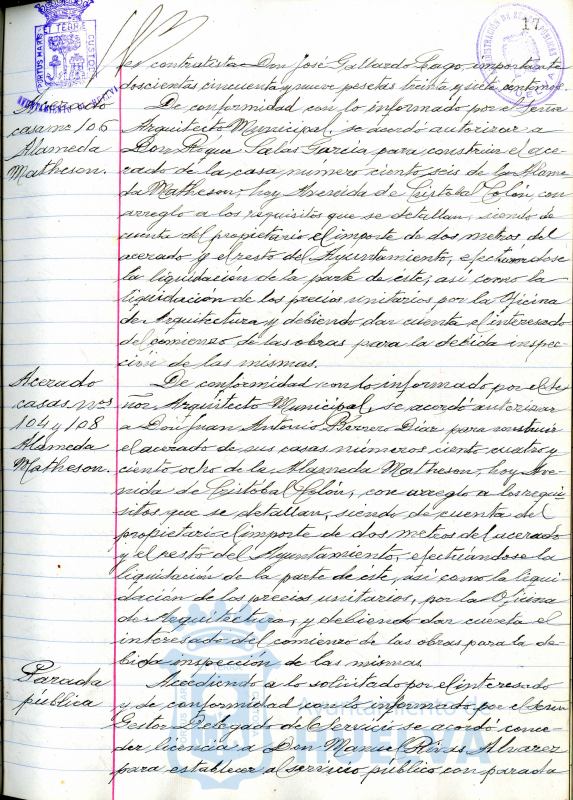 17
es contratista Don José Gallardo Lago, importante
doscientas cincuenta y nueve pesetas treinta y siete centimos.
Acerado
casa nº 106
Alameda
Matheson.
De conformidad con lo informado por el Señor
Arquitecto Municipal, se acordó autorizar a
Don Roque Salas García para construir el ace-
rado de la casa número ciento seis de la Alame-
da Matheson, hoy Avenida de Cristobal Colón, con
arreglo a los requisitos que se detallan, siendo de
cuenta del propietario el importe de dos metros del
acerado y el resto del Ayuntamiento, efectuandose
la liquidación de la parte de éste, así como la
liquidación de los precios unitarios por la Oficina
de Arquitectura y debiendo dar cuenta el interesado
del comienzo de las obras para la debida inspec-
ción de las mismas.
Acerado
casas nºs
104 y 108
Alameda
Matheson.
De conformidad con lo informado por el Se-
ñor Arquitecto Municipal, se acordó autorizar
a Don Juan Antonio Borrero Díaz para construir
el acerado de sus casas números ciento cuatro y
ciento ocho de la Alameda Matheson, hoy Ave-
nida de Cristóbal Colón, con arreglo a los requi-
sitos que se detallan, siendo de cuenta del
propietario el importe de dos metros del acerado
y el resto del Ayuntamiento, efectuándose la
liquidación de la parte de éste, así como la liqui-
dación de los precios unitarios, por la Oficina
de Arquitectura, y debiendo dar cuenta el
interesado del comienzo de las obras para la de-
bida inspección de las mismas.
Parada
pública
Accediendo a lo solicitado por el interesado
y de conformidad con lo informado por el Señor
Gestor Delegado de Servicio se acordó conce-
der licencia a Don Manuel Rivas Alvarez
para establecer al servicio público con parada
Ayuntamiento de
HUELVA